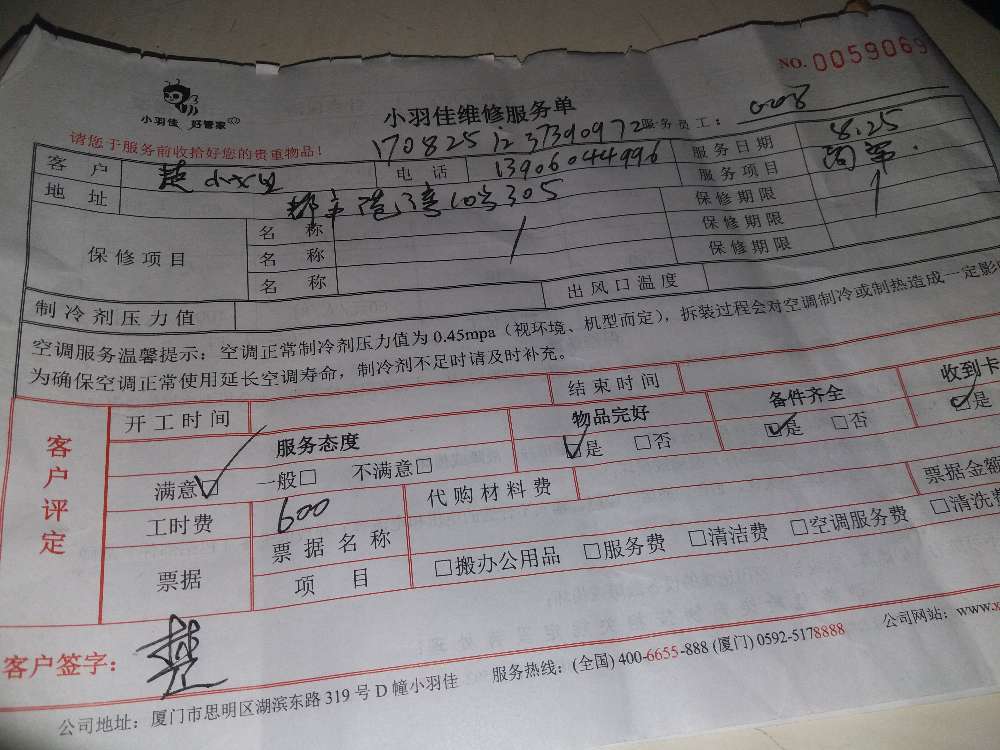 NO. 0059069
小羽佳 好管家
小羽佳维修服务单
请您于服务前收拾好您的贵重物品！
服务员工：
客户 电话 13906044996 服务日期 8.25
地址 305 服务项目
保修项目 名称 保修期限
名称 保修期限
名称 保修期限
制冷剂压力值 出风口温度
空调服务温馨提示：空调正常制冷剂压力值为 0.45mpa（视环境、机型而定），拆装过程会对空调制冷或制热造成一定影
为确保空调正常使用延长空调寿命，制冷剂不足时请及时补充。
客户评定
开工时间 结束时间
服务态度 物品完好 备件齐全 收到卡
满意☑ 一般□ 不满意□ ☑是 □否 ☑是 □否 ☑是
工时费 600 代购材料费 票据金额
票据 票据名称
项目 □搬办公用品 □服务费 □清洁费 □空调服务费 □清洗费
客户签字：
公司地址：厦门市思明区湖滨东路 319 号 D 幢小羽佳 服务热线：(全国) 400-6655-888 (厦门) 0592-5178888 公司网站：www.x